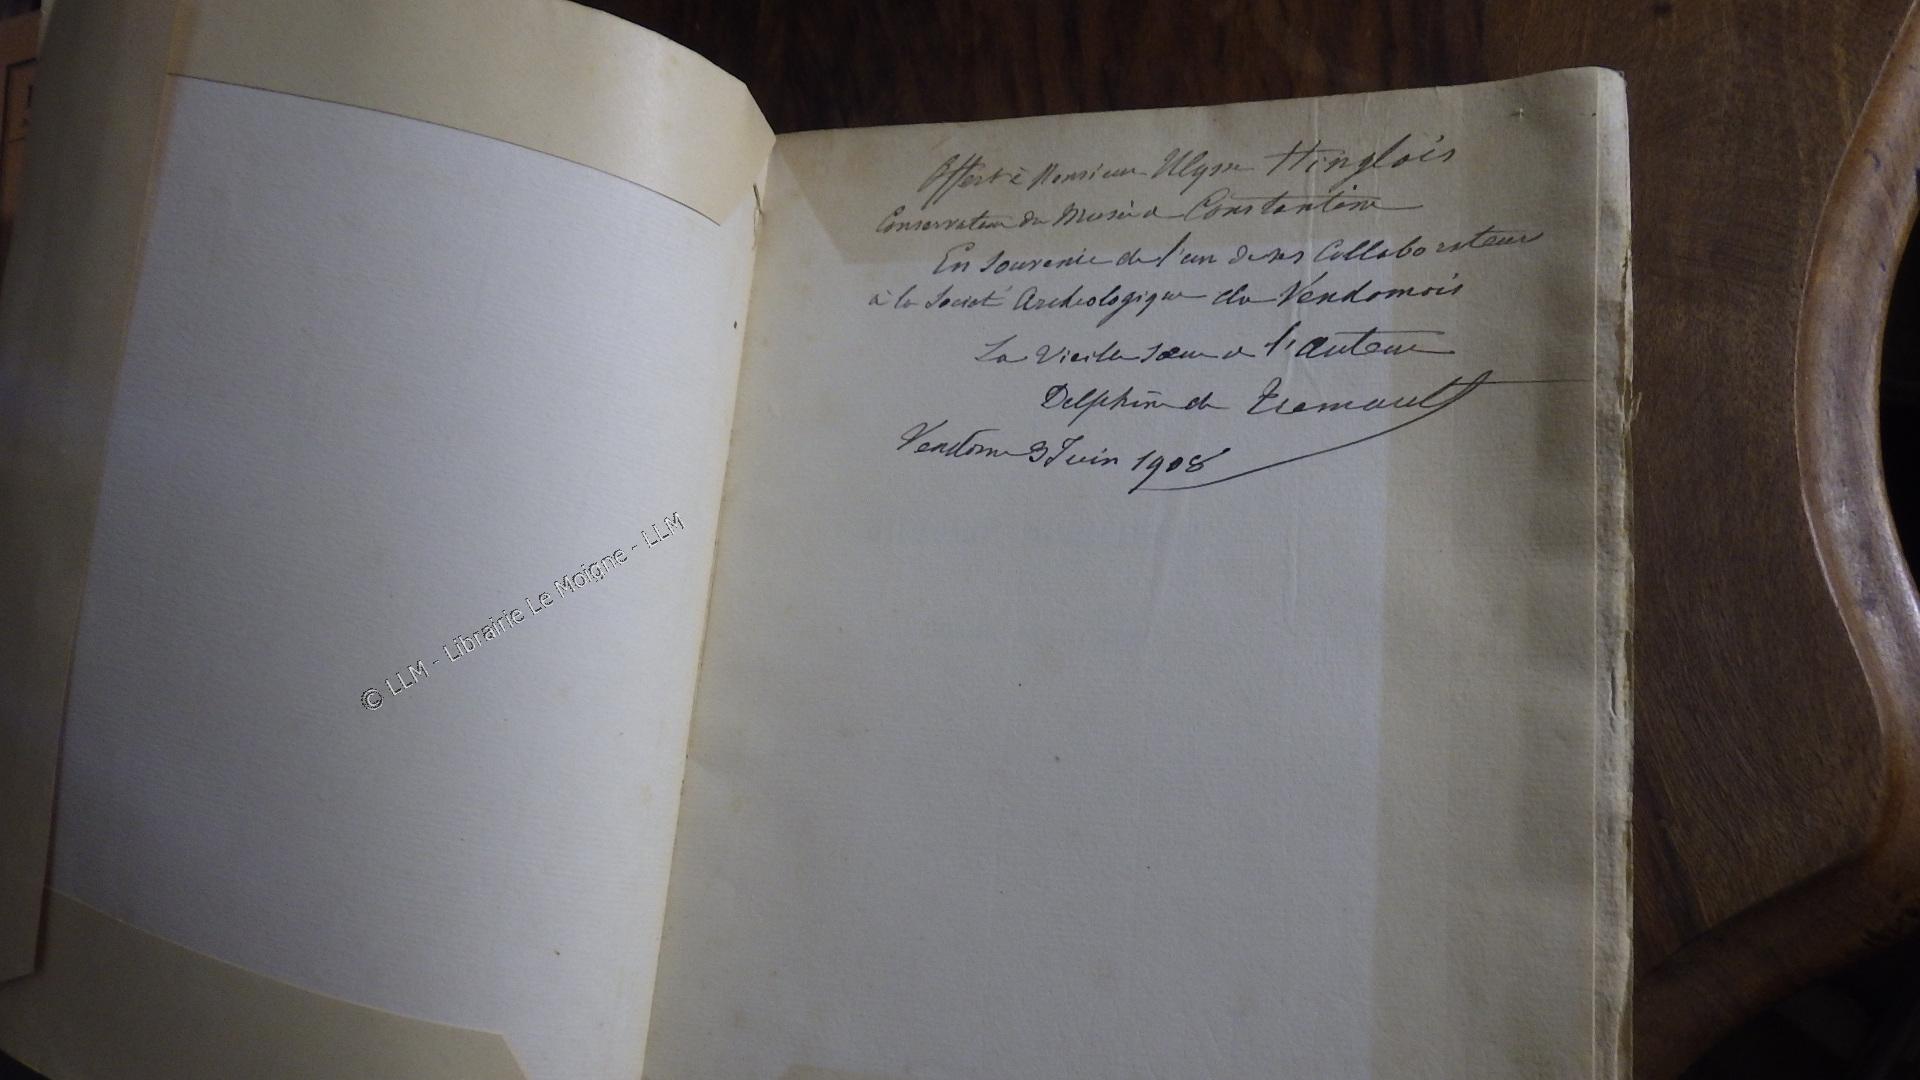 Offert à Monsieur Ulysse Hinglais
Conservateur du Musée de Constantine
En Souvenir de l'un de ses Collaborateurs
à la Societé Archeologique du Vendomois
La Vieille Sœur de l'auteur
Delphine de Tremault
Vendôme 3 Juin 1908
© LLM - Librairie Le Moigne - LLM